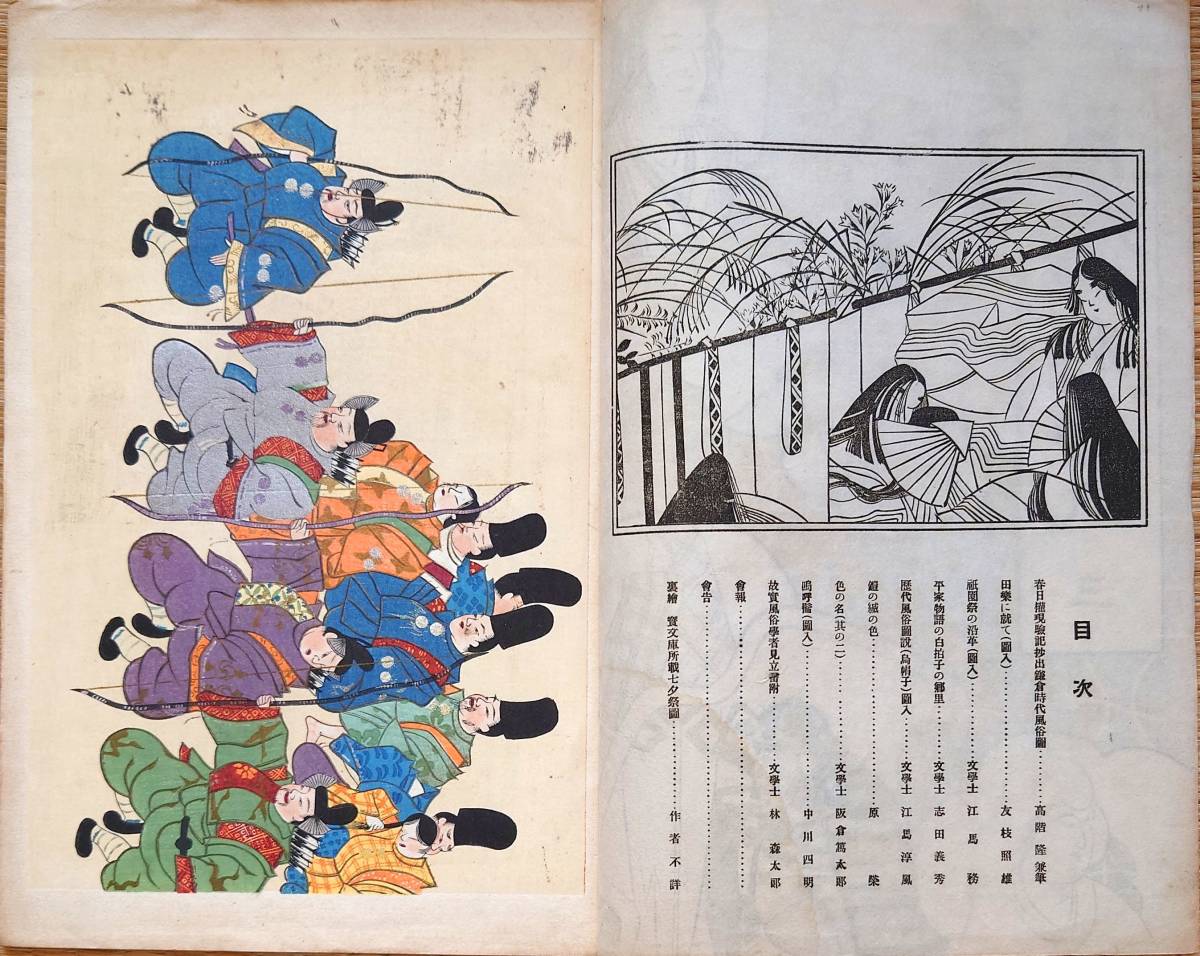 目次
春日權現驗記抄出鎌倉時代風俗圖……高階隆兼筆
田樂に就て(圖入)……友枝照雄
祇園祭の沿革(圖入)……文學士 江馬務
平家物語の白拍子の郷里……文學士 志田義秀
歷代風俗圖說(烏帽子)圖入……文學士 江馬淳風
鎧の縅の色……原榮
色の名(其の二)……文學士 阪倉篤太郎
嗚呼髷(圖入)……中川四明
故實風俗學者見立番附……文學士 林森太郎
會報……
會告……
裏繪 寶文庫所載七夕祭圖……作者不詳